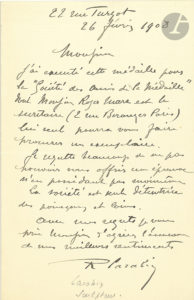 22 rue Turgot
26 février 1903
Monsieur
j'ai executé cette médaille pour
la Société des Amis de la Médaille
dont Monsieur Roger Marx est le
secrétaire (2 rue Paris)
lui seul pourra vous faire
procurer un exemplaire.
Je regrette beaucoup de ne pas
pouvoir vous offrir une épreuve
n'en possédant pas moi même
la société est seule détentrice
des poinçons et coins.
Avec mes regrets
Monsieur l'assurance
de mes meilleurs sentiments
R Carabin
Carabin
Sculpteur